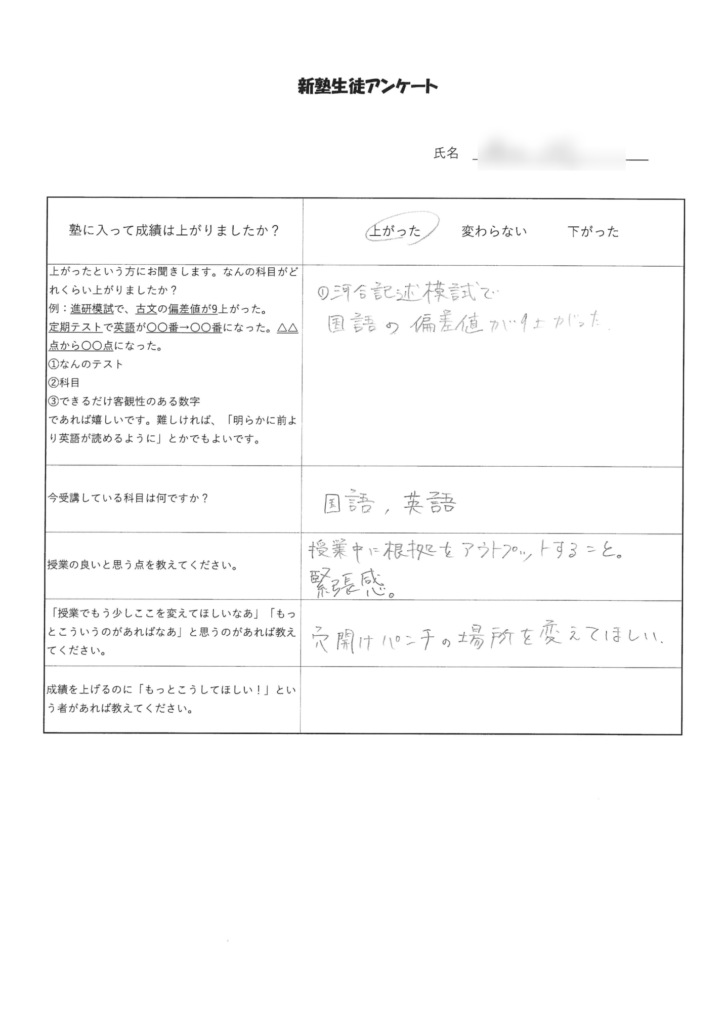 新塾生徒アンケート
氏名
塾に入って成績は上がりましたか？
上がった 変わらない 下がった
上がったという方にお聞きします。なんの科目がど
れくらい上がりましたか？
例：進研模試で、古文の偏差値が9上がった。
定期テストで英語が〇〇番→〇〇番になった。△△
点から〇〇点になった。
①なんのテスト
②科目
③できるだけ客観性のある数字
であれば嬉しいです。難しければ、「明らかに前よ
り英語が読めるように」とかでもよいです。
①河合記述模試で
国語の偏差値が9上がった.
今受講している科目は何ですか？
国語, 英語
授業の良いと思う点を教えてください。
授業中に根拠をアウトプットすること。
緊張感。
「授業でもう少しここを変えてほしいなあ」「もっ
とこういうのがあればなあ」と思うのがあれば教え
てください。
穴開けパンチの場所を変えてほしい.
成績を上げるのに「もっとこうしてほしい！」とい
う者があれば教えてください。